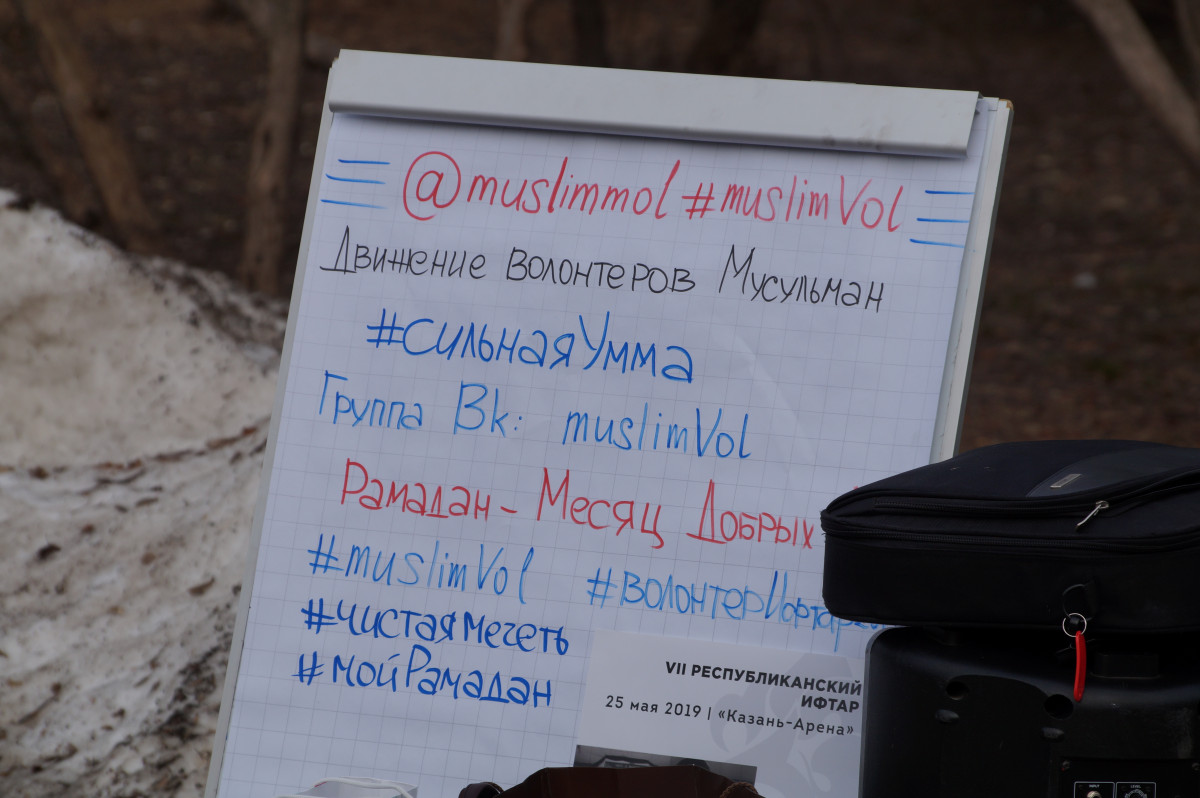 @muslimmol #muslimVol
Движение волонтеров Мусульман
#сильнаяУмма
Группа Вк: muslimVol
Рамадан - Месяц Добрых
#muslimVol #волонтерИфтара
#чистаямечеть
#мойРамадан
VII РЕСПУБЛИКАНСКИЙ
ИФТАР
25 мая 2019 | «Казань-Арена»